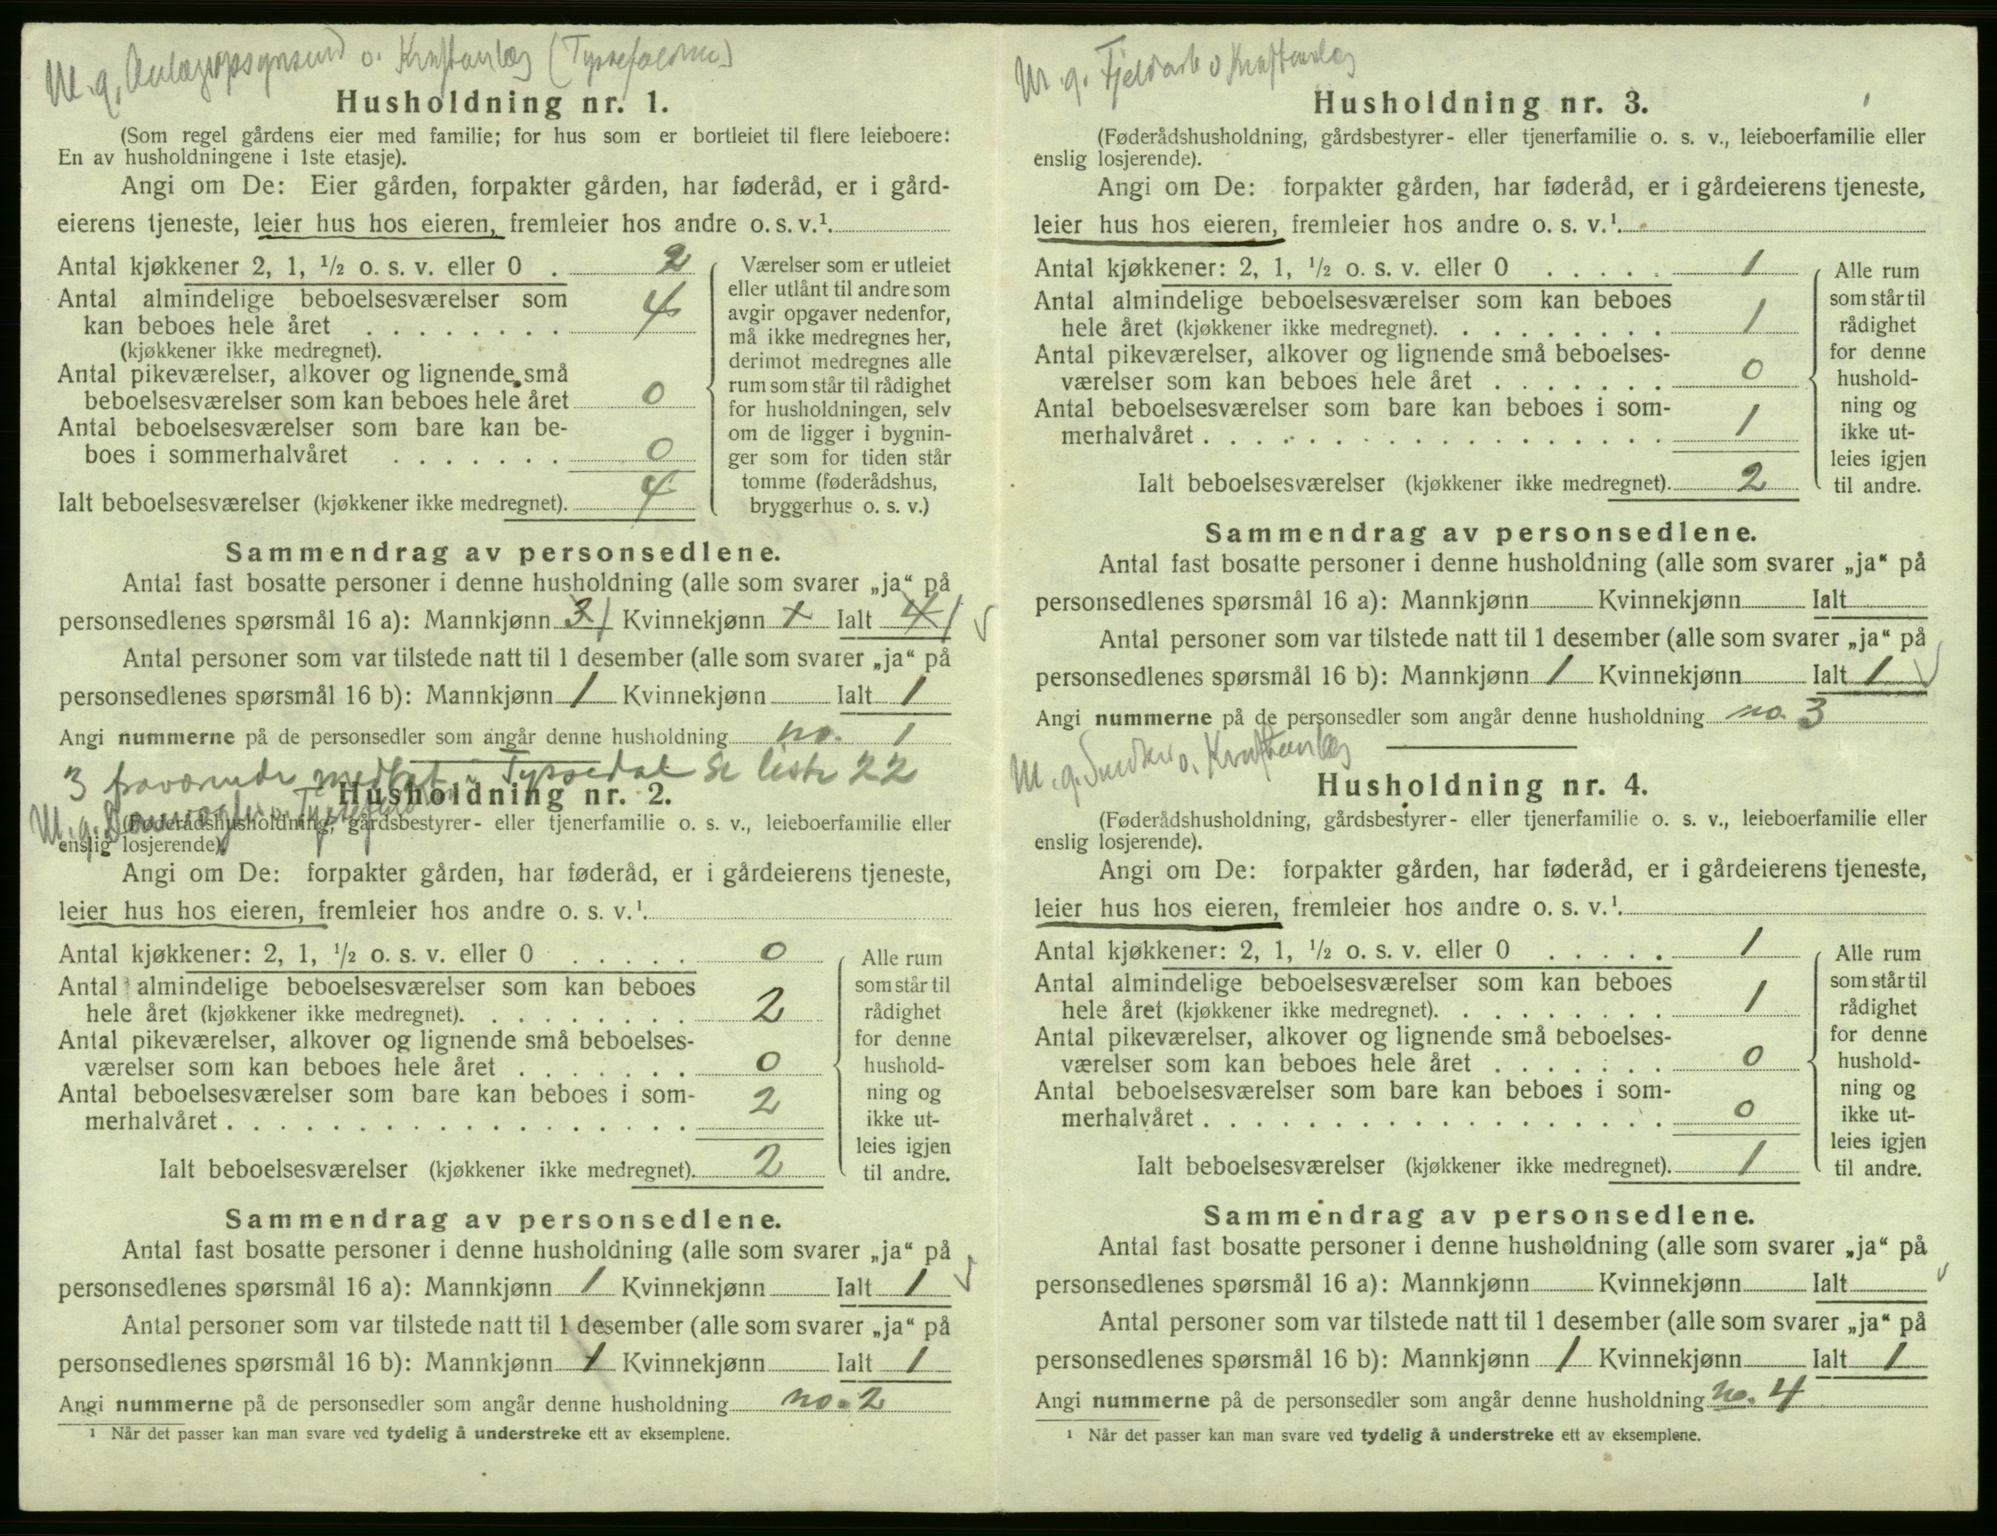 M. g. Anlægsopsynsmand v. Kraftanlæg (Tyssefaldene)
Husholdning nr. 1.
(Som regel gårdens eier med familie; for hus som er bortleiet til flere leieboere:
En av husholdningene i 1ste etasje).
Angi om De: Eier gården, forpakter gården, har føderåd, er i gård-
eierens tjeneste, leier hus hos eieren, fremleier hos andre o. s. v.¹
Antal kjøkkener 2, 1, ½ o. s. v. eller 0 . 2
Antal almindelige beboelsesværelser som
kan beboes hele året . . . . . . . . 4
(kjøkkener ikke medregnet).
Antal pikeværelser, alkover og lignende små
beboelsesværelser som kan beboes hele året 0
Antal beboelsesværelser som bare kan be-
boes i sommerhalvåret . . . . . . . 0
Ialt beboelsesværelser (kjøkkener ikke medregnet). 4
Værelser som er utleiet
eller utlånt til andre som
avgir opgaver nedenfor,
må ikke medregnes her,
derimot medregnes alle
rum som står til rådighet
for husholdningen, selv
om de ligger i bygnin-
ger som for tiden står
tomme (føderådshus,
bryggerhus o. s. v.)
Sammendrag av personsedlene.
Antal fast bosatte personer i denne husholdning (alle som svarer „ja“ på
personsedlenes spørsmål 16 a): Mannkjønn 3 1 Kvinnekjønn 1 Ialt 4 1
Antal personer som var tilstede natt til 1 desember (alle som svarer „ja“ på
personsedlenes spørsmål 16 b): Mannkjønn 1 Kvinnekjønn Ialt 1
Angi nummerne på de personsedler som angår denne husholdning no. 1
3 fraværende medtat i Tyssedal Se liste 22
Husholdning nr. 2.
M. g. v. Tyssefald
(Føderådshusholdning, gårdsbestyrer- eller tjenerfamilie o. s. v., leieboerfamilie eller
enslig losjerende).
Angi om De: forpakter gården, har føderåd, er i gårdeierens tjeneste,
leier hus hos eieren, fremleier hos andre o. s. v.¹
Antal kjøkkener: 2, 1, ½ o. s. v. eller 0 . . . . . 0
Antal almindelige beboelsesværelser som kan beboes
hele året (kjøkkener ikke medregnet). . . . . . . . . 2
Antal pikeværelser, alkover og lignende små beboelses-
værelser som kan beboes hele året . . . . . . . 0
Antal beboelsesværelser som bare kan beboes i som-
merhalvåret . . . . . . . . . . . . . . . . . . 2
Ialt beboelsesværelser (kjøkkener ikke medregnet). 2
Alle rum
som står til
rådighet
for denne
hushold-
ning og
ikke ut-
leies igjen
til andre.
Sammendrag av personsedlene.
Antal fast bosatte personer i denne husholdning (alle som svarer „ja“ på
personsedlenes spørsmål 16 a): Mannkjønn 1 Kvinnekjønn Ialt 1
Antal personer som var tilstede natt til 1 desember (alle som svarer „ja“ på
personsedlenes spørsmål 16 b): Mannkjønn 1 Kvinnekjønn Ialt 1
Angi nummerne på de personsedler som angår denne husholdning no. 2
¹ Når det passer kan man svare ved tydelig å understreke ett av eksemplene.
M. g. Fjeldarb v Kraftanlæg
Husholdning nr. 3.
(Føderådshusholdning, gårdsbestyrer- eller tjenerfamilie o. s. v., leieboerfamilie eller
enslig losjerende).
Angi om De: forpakter gården, har føderåd, er i gårdeierens tjeneste,
leier hus hos eieren, fremleier hos andre o. s. v.¹
Antal kjøkkener: 2, 1, ½ o. s. v. eller 0 . . . . . 1
Antal almindelige beboelsesværelser som kan beboes
hele året (kjøkkener ikke medregnet). . . . . . . . . 1
Antal pikeværelser, alkover og lignende små beboelses-
værelser som kan beboes hele året . . . . . . . 0
Antal beboelsesværelser som bare kan beboes i som-
merhalvåret . . . . . . . . . . . . . . . . . . 1
Ialt beboelsesværelser (kjøkkener ikke medregnet). 2
Alle rum
som står til
rådighet
for denne
hushold-
ning og
ikke ut-
leies igjen
til andre.
Sammendrag av personsedlene.
Antal fast bosatte personer i denne husholdning (alle som svarer „ja“ på
personsedlenes spørsmål 16 a): Mannkjønn Kvinnekjønn Ialt
Antal personer som var tilstede natt til 1 desember (alle som svarer „ja“ på
personsedlenes spørsmål 16 b): Mannkjønn 1 Kvinnekjønn Ialt 1
Angi nummerne på de personsedler som angår denne husholdning no. 3
M. g. v. Kraftanlæg
Husholdning nr. 4.
(Føderådshusholdning, gårdsbestyrer- eller tjenerfamilie o. s. v., leieboerfamilie eller
enslig losjerende).
Angi om De: forpakter gården, har føderåd, er i gårdeierens tjeneste,
leier hus hos eieren, fremleier hos andre o. s. v.¹
Antal kjøkkener: 2, 1, ½ o. s. v. eller 0 . . . . . 1
Antal almindelige beboelsesværelser som kan beboes
hele året (kjøkkener ikke medregnet). . . . . . . . . 1
Antal pikeværelser, alkover og lignende små beboelses-
værelser som kan beboes hele året . . . . . . . 0
Antal beboelsesværelser som bare kan beboes i som-
merhalvåret . . . . . . . . . . . . . . . . . . 0
Ialt beboelsesværelser (kjøkkener ikke medregnet). 1
Alle rum
som står til
rådighet
for denne
hushold-
ning og
ikke ut-
leies igjen
til andre.
Sammendrag av personsedlene.
Antal fast bosatte personer i denne husholdning (alle som svarer „ja“ på
personsedlenes spørsmål 16 a): Mannkjønn Kvinnekjønn Ialt
Antal personer som var tilstede natt til 1 desember (alle som svarer „ja“ på
personsedlenes spørsmål 16 b): Mannkjønn 1 Kvinnekjønn Ialt 1
Angi nummerne på de personsedler som angår denne husholdning no. 4
¹ Når det passer kan man svare ved tydelig å understreke ett av eksemplene.